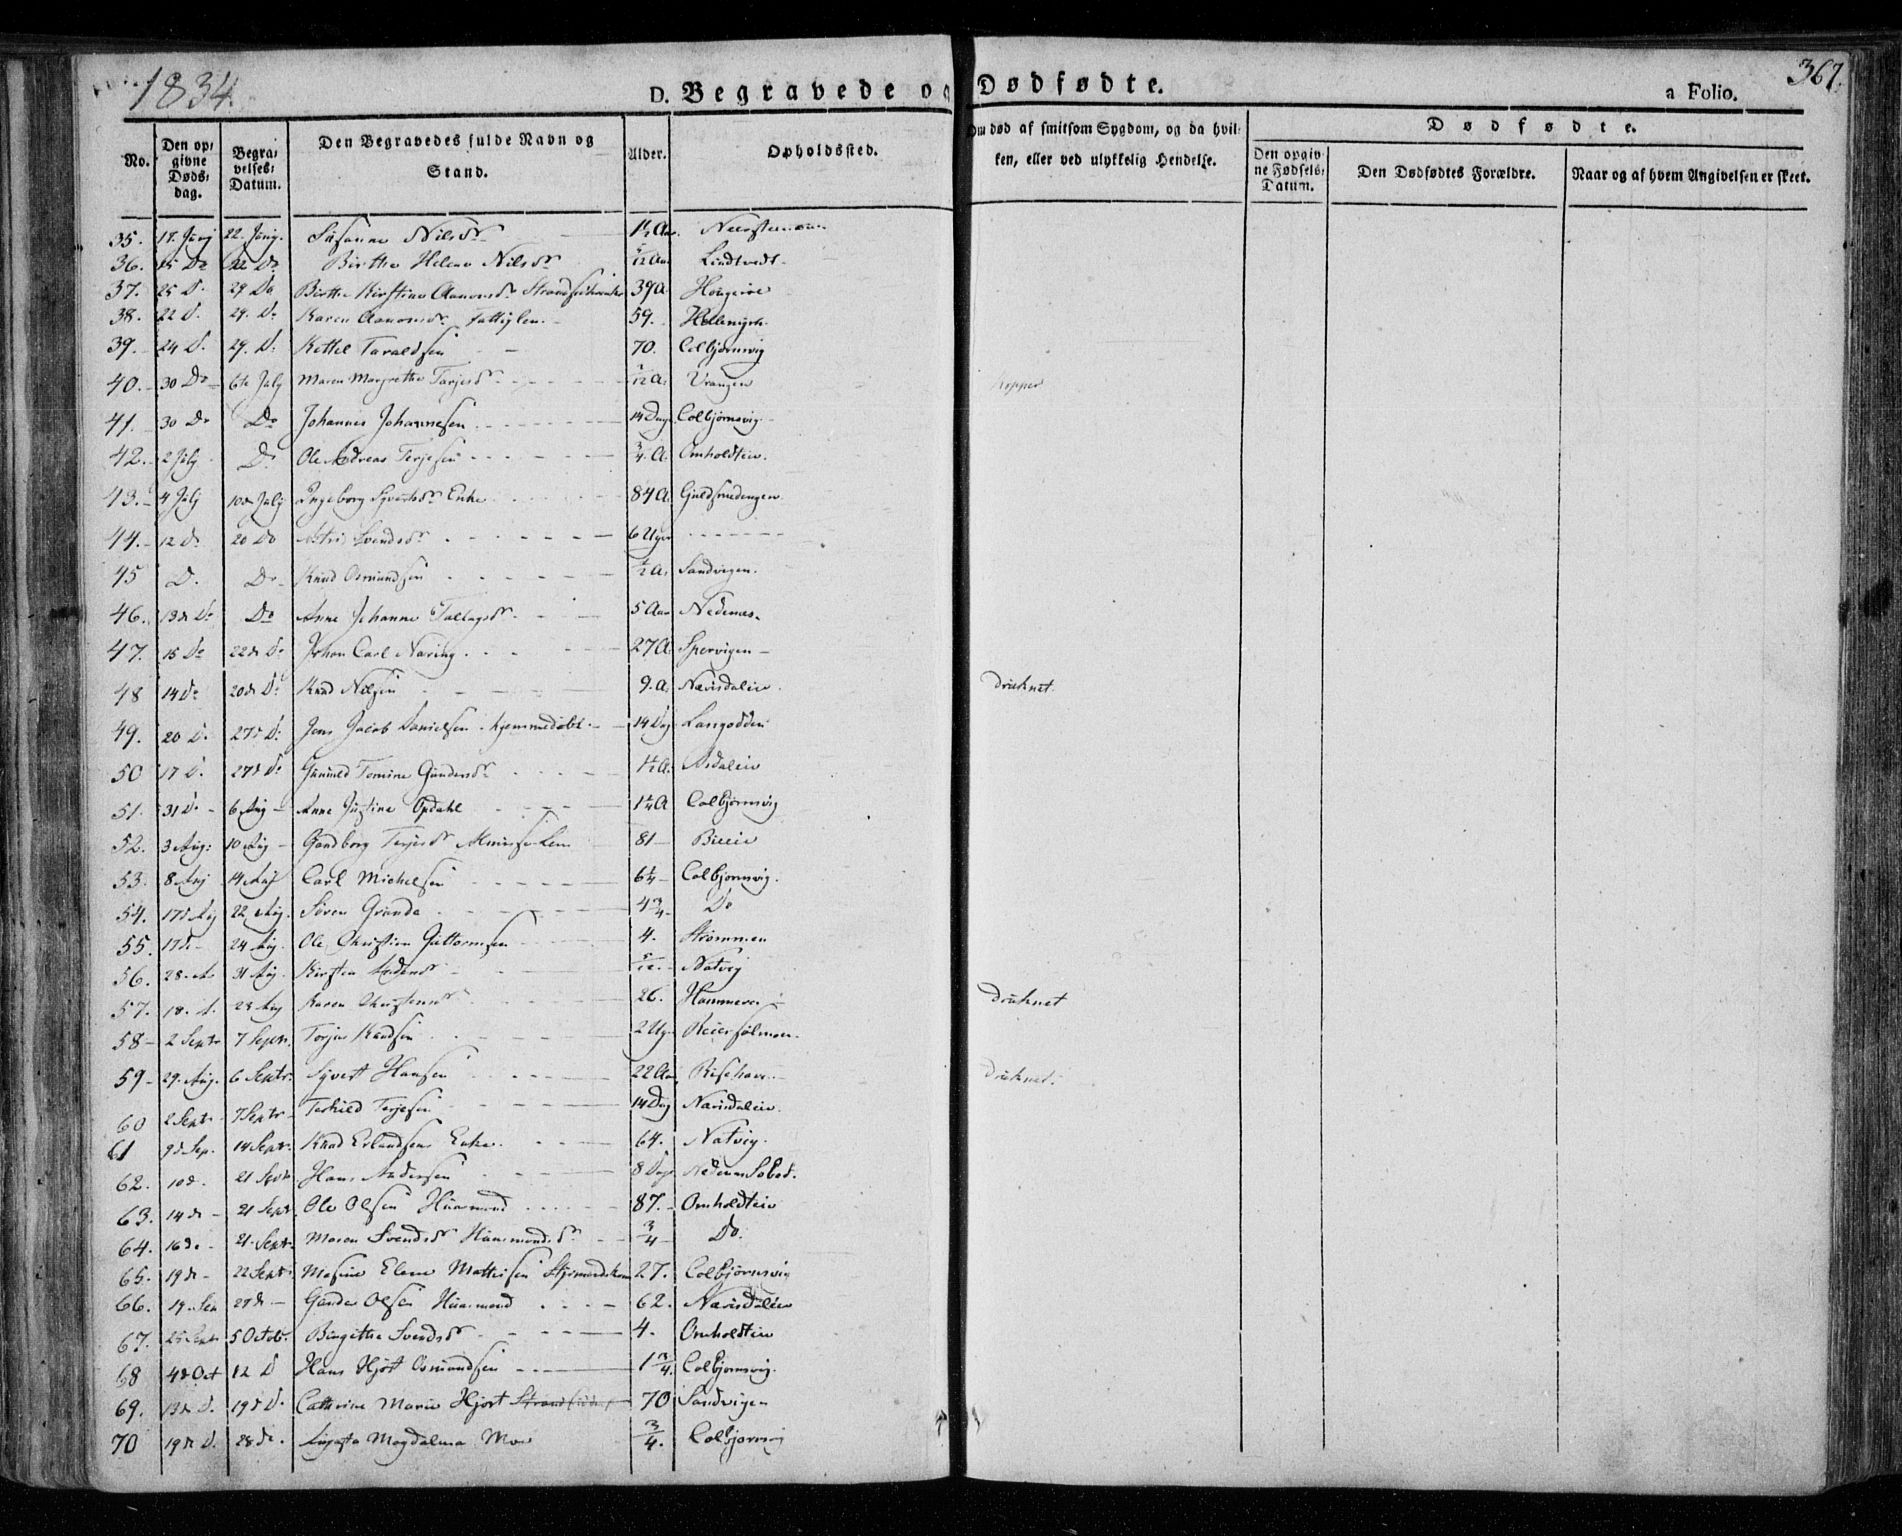 1834.
D. Begravede og Dødfødte.
a Folio.
367.
No.
Den opgivne Dødsdag.
Begravelses-Datum.
Den Begravedes fulde Navn og Stand.
Alder.
Opholdssted.
Om død af smitsom Sygdom, og da hvilken, eller ved ulykkelig Hendelse.
Dødfødte.
Den opgivne Fødsels-Datum.
Den Dødfødtes Forældre.
Naar og af hvem Angivelsen er skeet.
35. 18. Junj 22. Junj. Susanne Nilsdr
36. 15 Do 22 Do Birthe Helene Nilsdr Lindtvedt
37. 25 D. 29 Do Birthe Kirstine Aanonsdr 39 A
38. 22 D. 29. Do Karen Aanonsdr Fattiglem 59.
39. 24 D. 29. D. Kettel Taraldsen 70. Colbjørnsvig
40. 30 Do 6te July Maren Margrethe Terjesdr Vrangen Kopper
41. 30 Do Do Johannes Johannesen 14 Dage Colbjørnsvig
42. 2 July Do Ole Andreas Terjesen 3/4 A. Omholdteie.
43. 4 July 10de July Ingeborg Syvertsdr Enke 84 A Guldsmedengen
44. 12 D. 20 Do Astri Svendsdr 6 Uger
45 D. Do Knud Osmundsen 1/2 A. Sandvigen.
46. 13de Do Do Anne Johanne Tallagsdr 5 Aar Nedenæs.
47. 15 Do 22de Do Johan Carl Naring 27 A Spervigen
48 14 Do 20de Do Knud Nilsen 9. A. Næsdaleie druknet.
49. 20 D. 27de D. Jens Jacob Danielsen hjemmedøbt 14 Dag Langodden
50 17 D. 27de Do Gunild Tomine Gundersdr 1 1/2 A. Asdaleie
51. 31 D. 6 Aug Anne Justine Opdahl 1 1/4 A Colbjørnsvig
52. 3 Aug: 10 Aug Gundborg Terjesdr 81 Bieeie
53. 8 Aug 14 Aug Carl Michelsen 6 1/4 Colbjørnsvig.
54. 17de Aug 22 Aug. Søren Grunde 4 3/4 Do
55. 17de 24 Aug. Ole Christian Guttormsen 4. Strømmen
56. 28. 31 Aug. Kirsten Andersdr Natvig
57. 18. 23 Aug Karen Christensdr 26. Hammeren druknet
58 2 Septr 7 Septr. Torjus Knudsen 2 Ug. Reiersølmoen.
59 29. Aug. 6 Septr. Syvert Hansen 22 Aar Risehavn druknet.
60 2 Septr 7 Septr Terkild Terjesen 14 Dag Næsdaleie.
61 9de Sep. 14 Septr. Knud Erlandsens Enke 64. Natvig.
62. 10de. 21 Septr Hans Andersen 8 Dage
63. 14de 21 Septr. Ole Olsen Huusmand 87. Omholdteie
64. 16de 21. Septr. Maren Svendsdr Huusmandsdr 3/4 Do.
65. 19de 22 Septr. Mosine Elene Mattisen Styrmandskone 27. Colbjørnsvig
66. 19. Sep 27de Gunder Olsen Huusmand 62. Næsdaleie
67. 25 Septr 5 Octobr. Birgithe Svendsdr 4. Omholdteie
68 4de Oct 12 D Hans Hjort Osmundsen 1 3/4. Colbjørnsvig.
69. 13de D. 19de D. Cathrine Marie Hjort 70 Sandvigen
70 19de D. 28de. Augusta Magdalena Moe 3/4. Colbjørnsvig